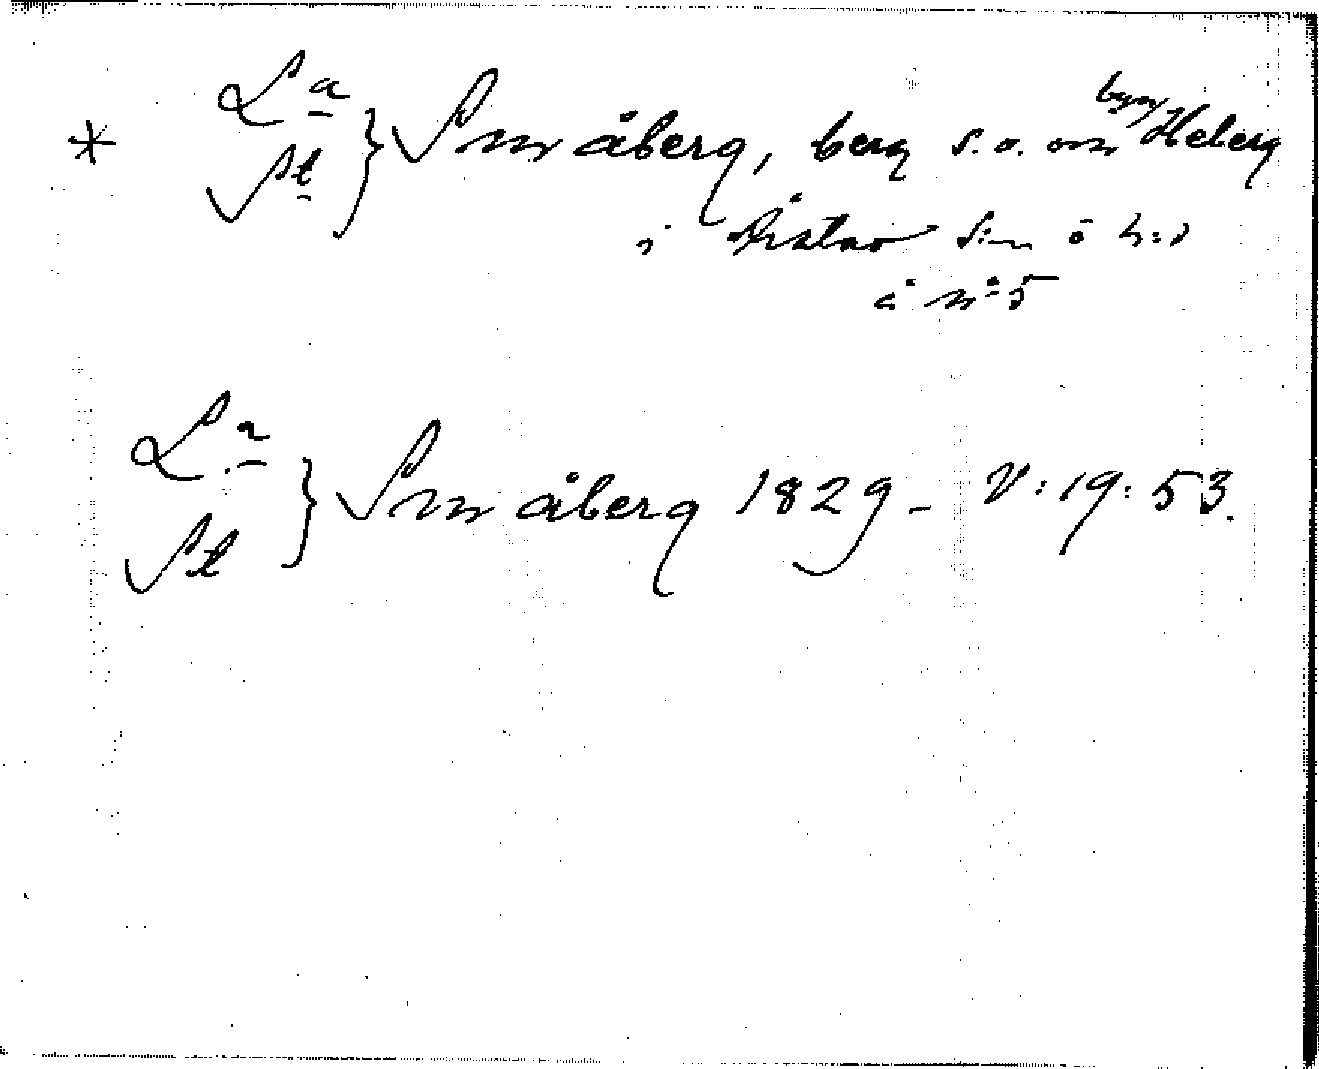 * La St } Småberg, berg s.o. om byn Heberg
i Årstad sn o h:d
å n:o 5
La St } Småberg 1829 - V:19:53.